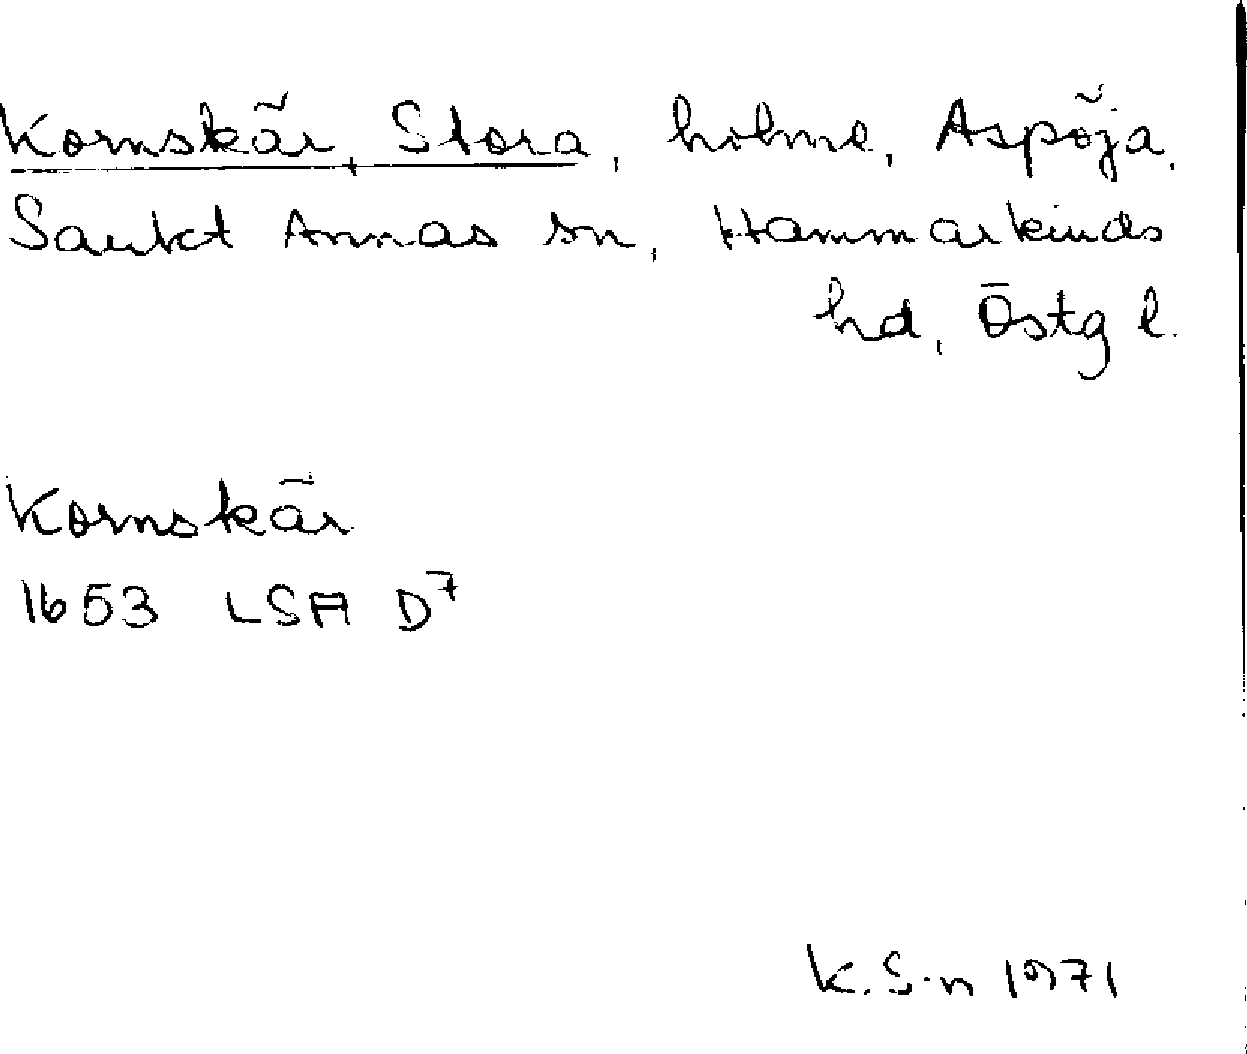 Kornskär, Stora, holme, Aspöja,
Sankt Annas sn, Hammarkinds
hd, Östg l.
Kornskär
1653 LSA D7
K. S-n 1971